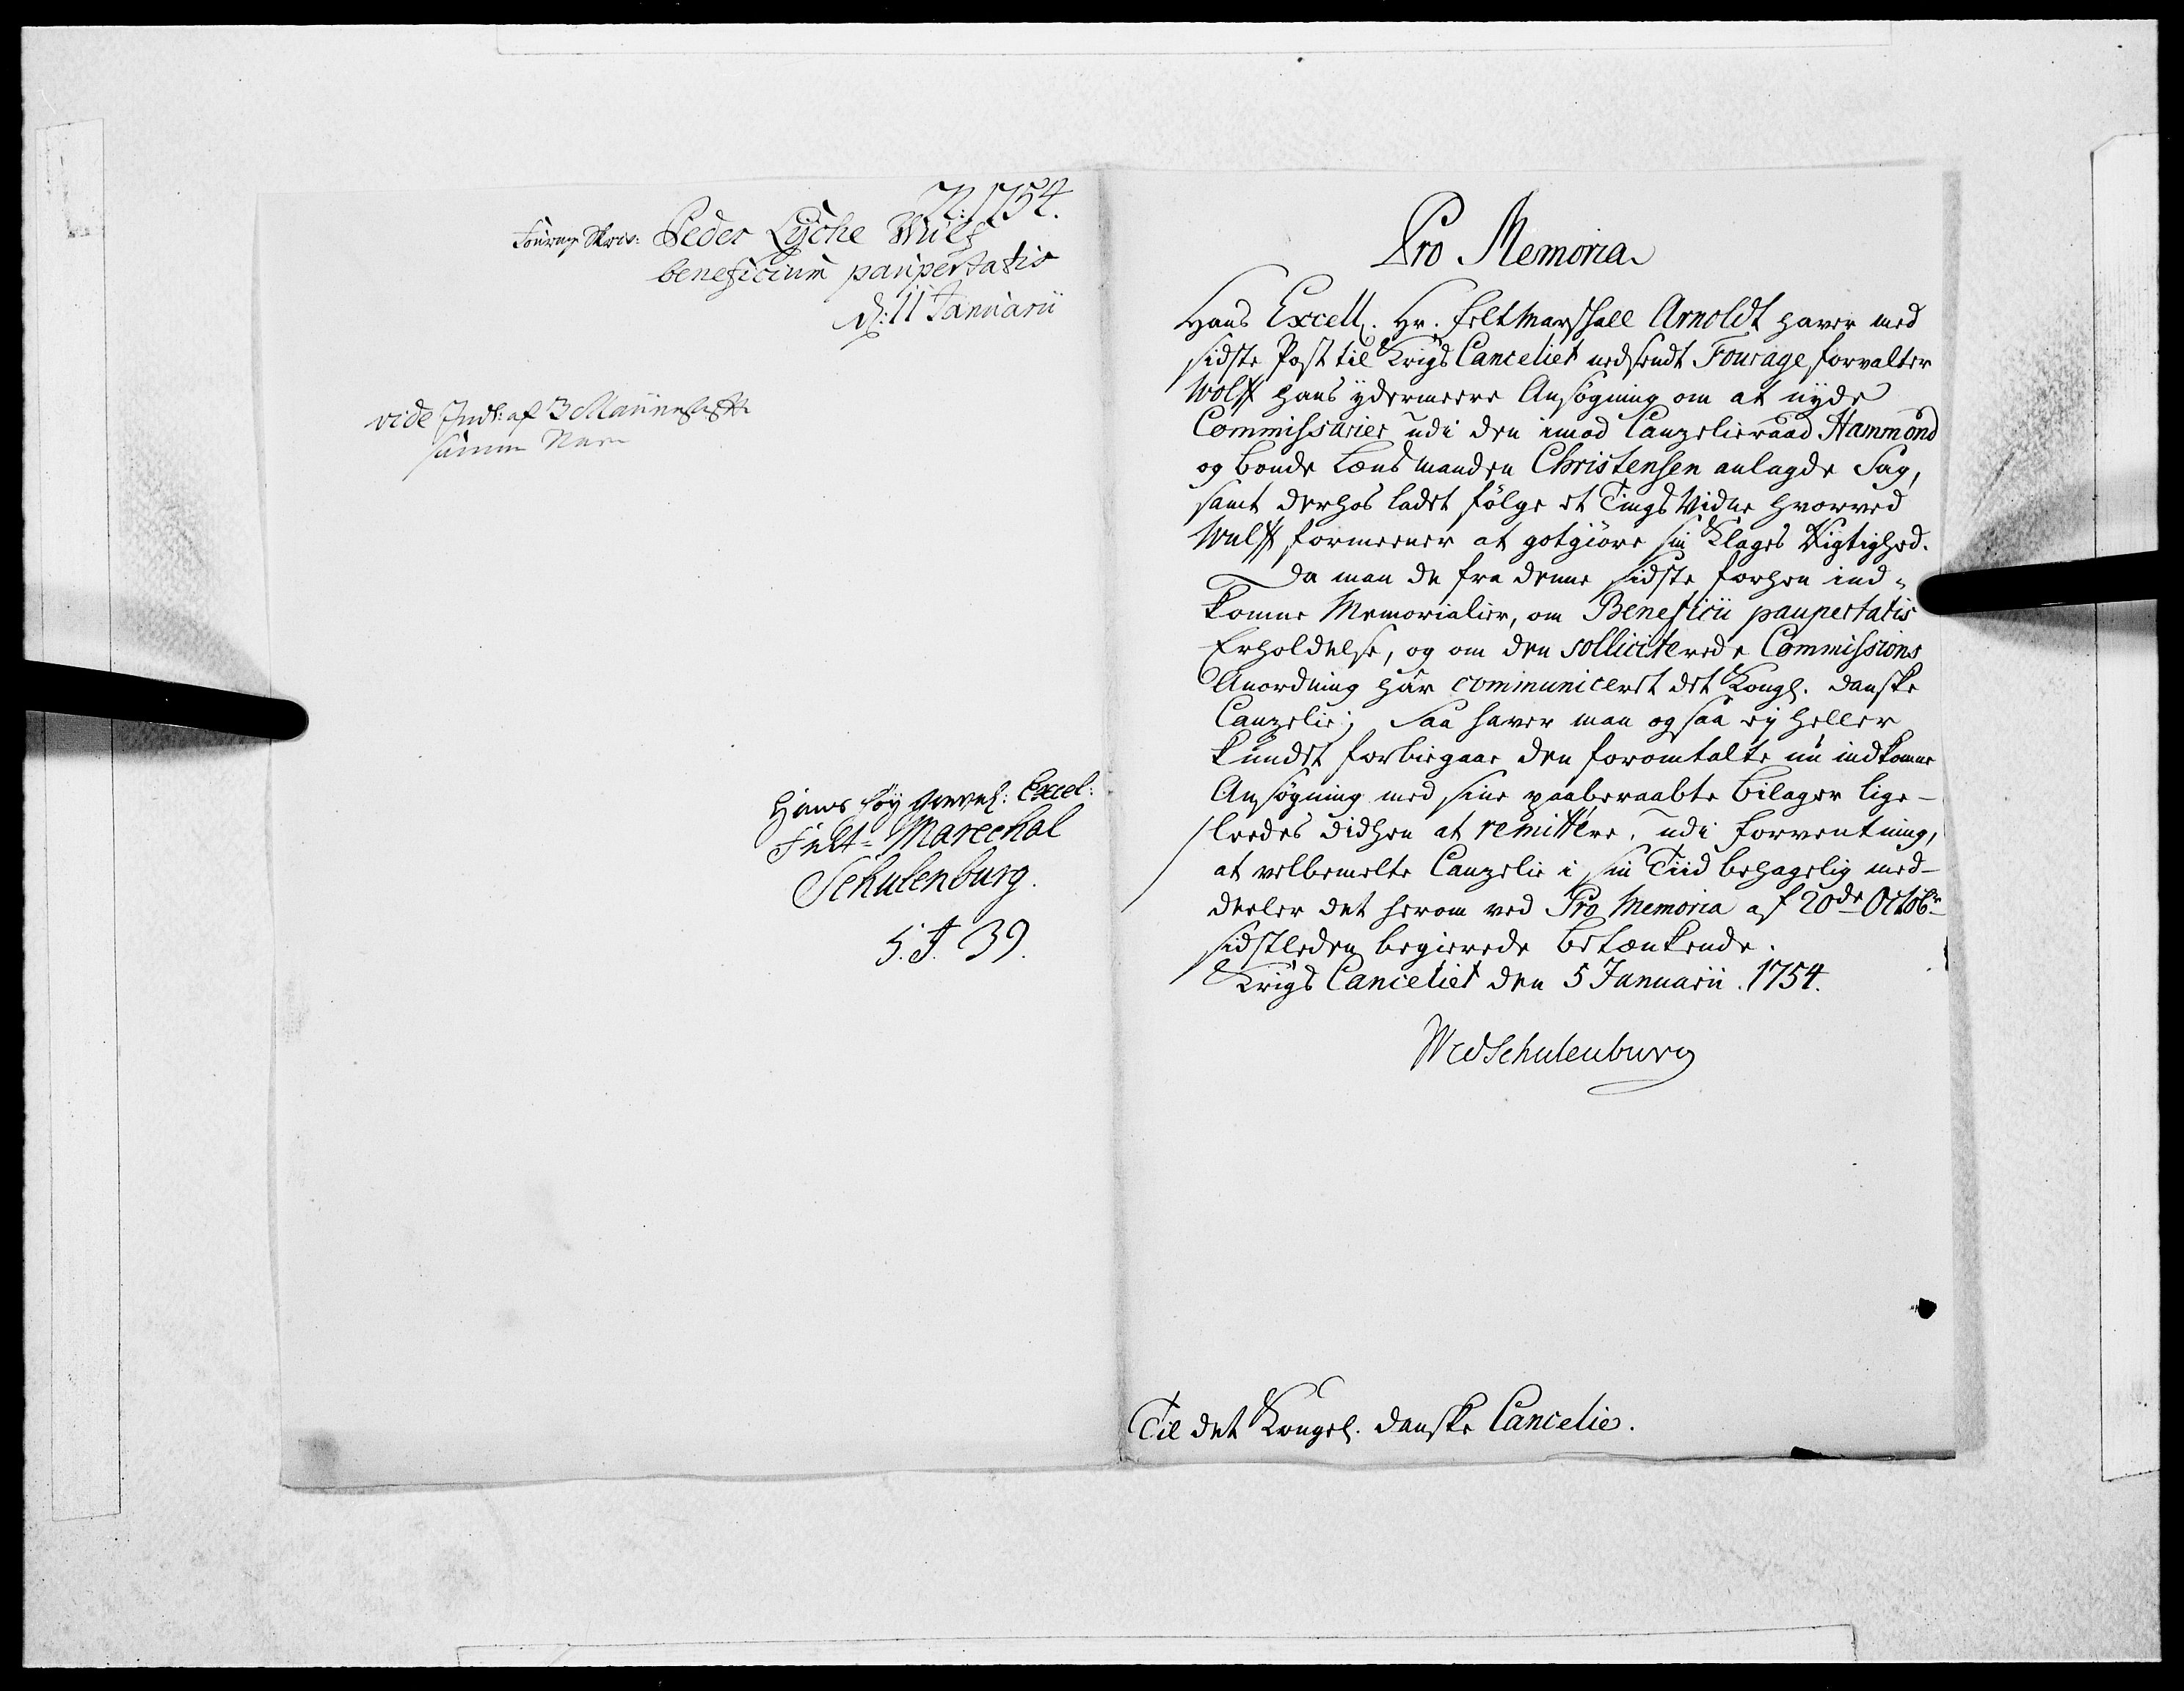 N: 1754.
Fourage Skriv: Peder Lyche Wulf
beneficium paupertatis
d: 11 Januarii
vide Indl: af
samme
Hans Høy Grevel: Excel:
Felt-Marechal
Schulenburg.
5. J. 39.
Pro Memoria
Hans Excell. Hr. Felt Marschall Arnoldt haver med
sidste Post til Krigs Canceliet nedsendt Fourageforvalter
Wolff hans ydermeere Ansøgning om at nyde
Commissarier udi den imod Canzelieraad Hammond
og bonde Lænsmanden Christensen anlagde Sag,
samt derhos ladet følge et Tings Vidne hvorved
Wulff formeener at gotgiøre sin Klages Rigtighed.
Da man de fra denne sidste forhen ind-
komne Memorialier, om Beneficii paupertatis
Erholdelse, og om den solliciterede Commissions
Anordning har communiceret det Kongl. danske
Canzelie; Saa haver man ogsaa ey heller
kundet forbiegaae den foromtalte nu indkomne
Ansøgning med sine paaberaabte bilager lige-
leedes didhen at remittere, udi forventning,
at velbemelte Canzelie i sin Tiid behagelig med-
deeler det herom ved Pro Memoria af 20de Octobr
sidstleden begierede betænkende.
Krigs Canceliet den 5 Januarii. 1754.
WvdSchulenburg
Til det Kongel. danske Cancelie.